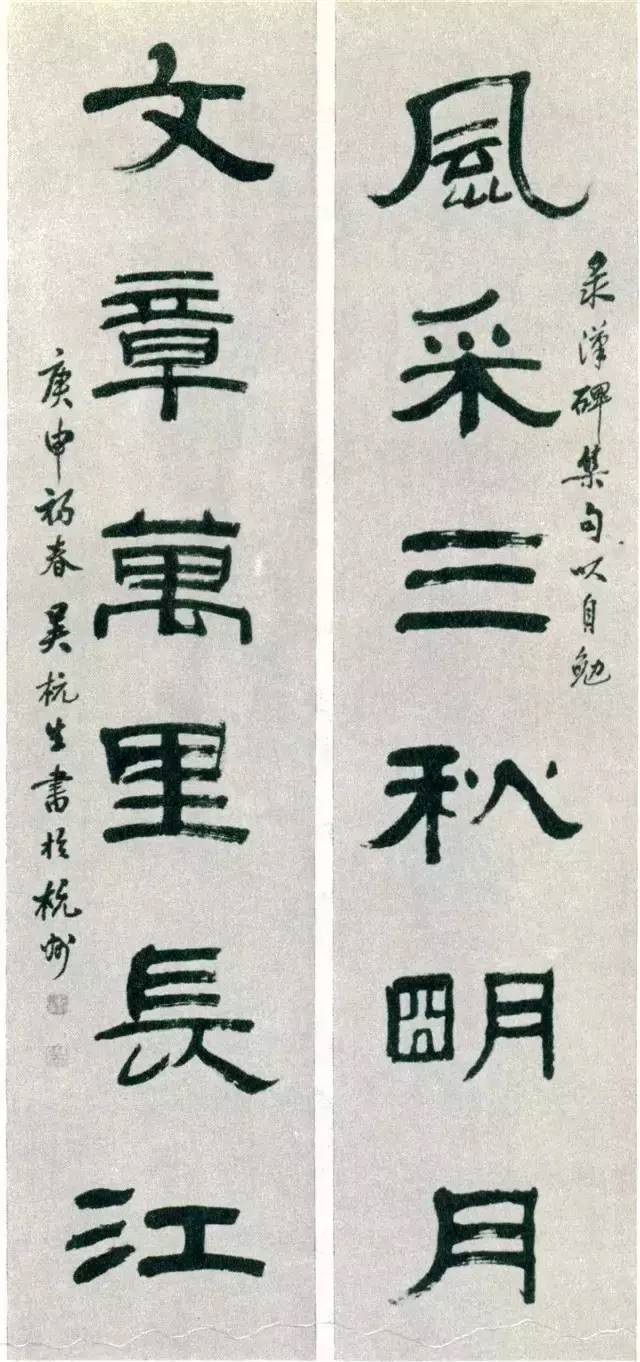 录漢碑集句以自勉
風采三秋朙月
文章萬里長江
庚申初春吴杭生書於杭州